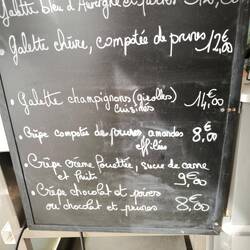 Galette bleu d'Auvergne et
Galette chèvre, compotée de prunes 12,00€
• Galette champignons (girolles) 14,00€
cuisinés
• Crêpe compotée de prunes, amandes 8,00€
effilées
• Crêpe crème fouettée, sucre de canne
et fruits 9,00€
• Crêpe chocolat et poires
ou chocolat et prunes 8,00€